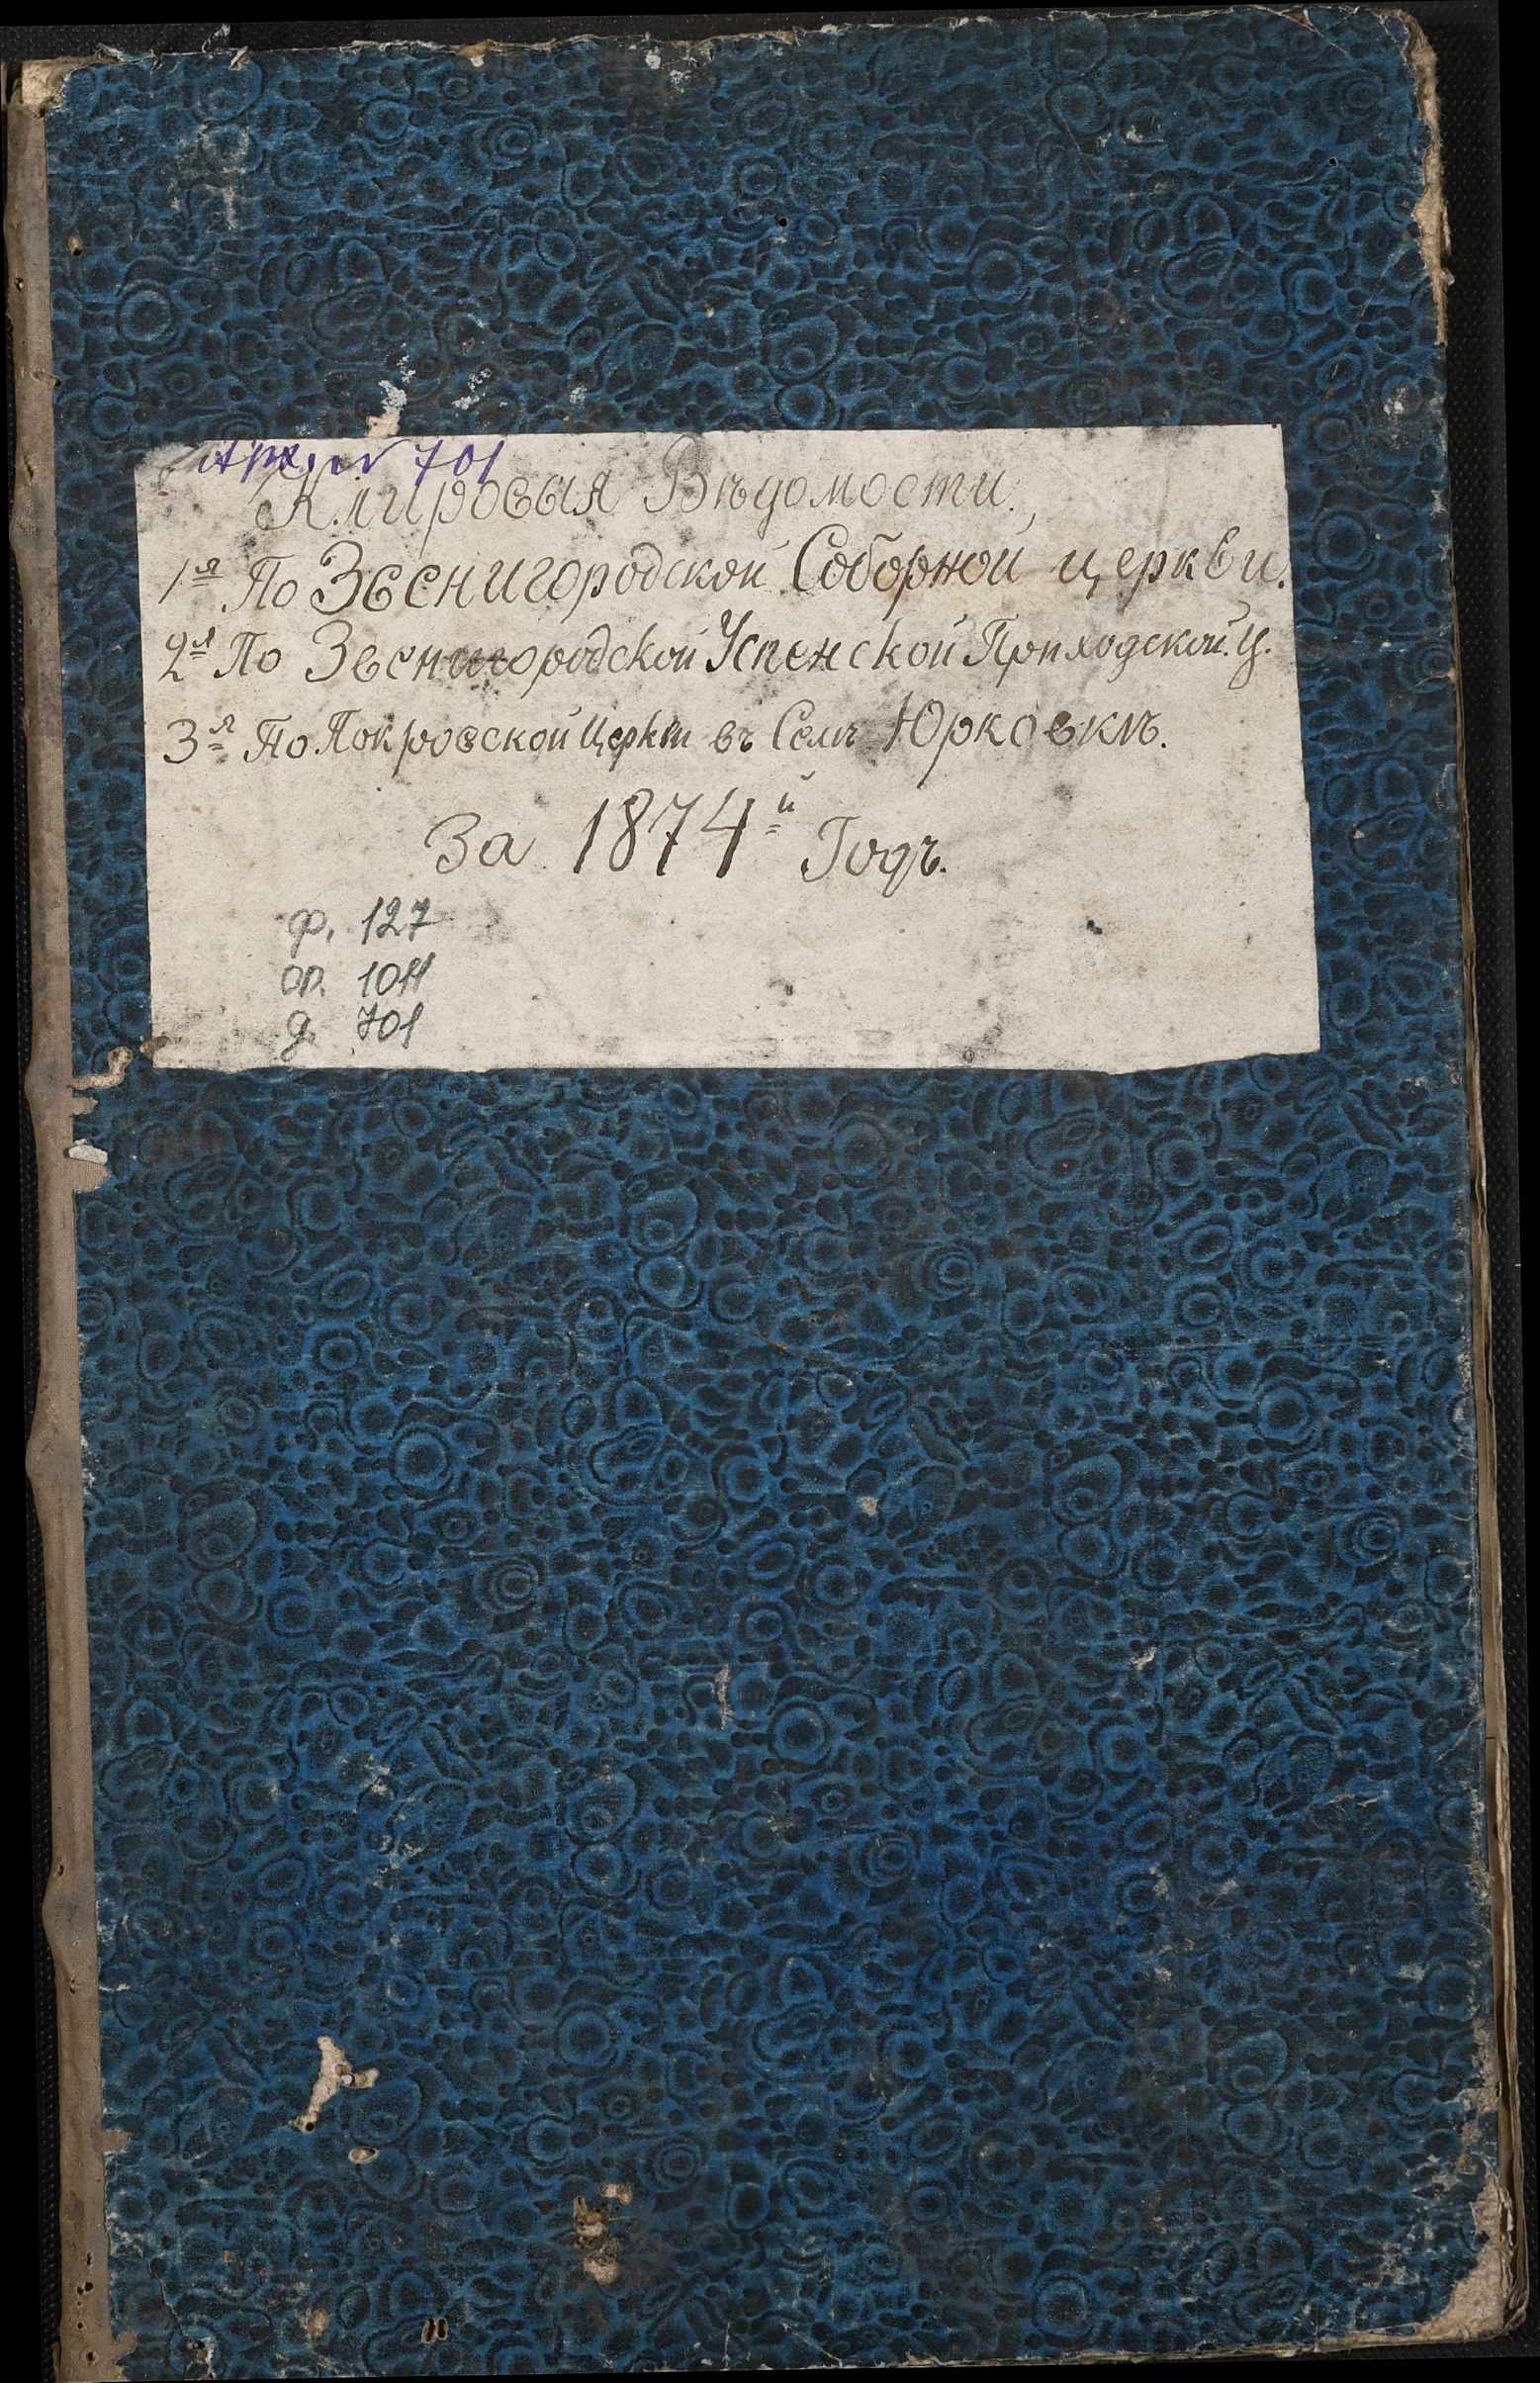 Арх. № 701
Клировыя Вѣдомости.
1я По Звенигородской Соборной церкви.
2я По Звенигородской Успенской Приходской. Ц.
3я По Покровской Церкви въ Селѣ Юрковкѣ.
За 1874й Годъ.
ф. 127
оп. 1011
д. 701